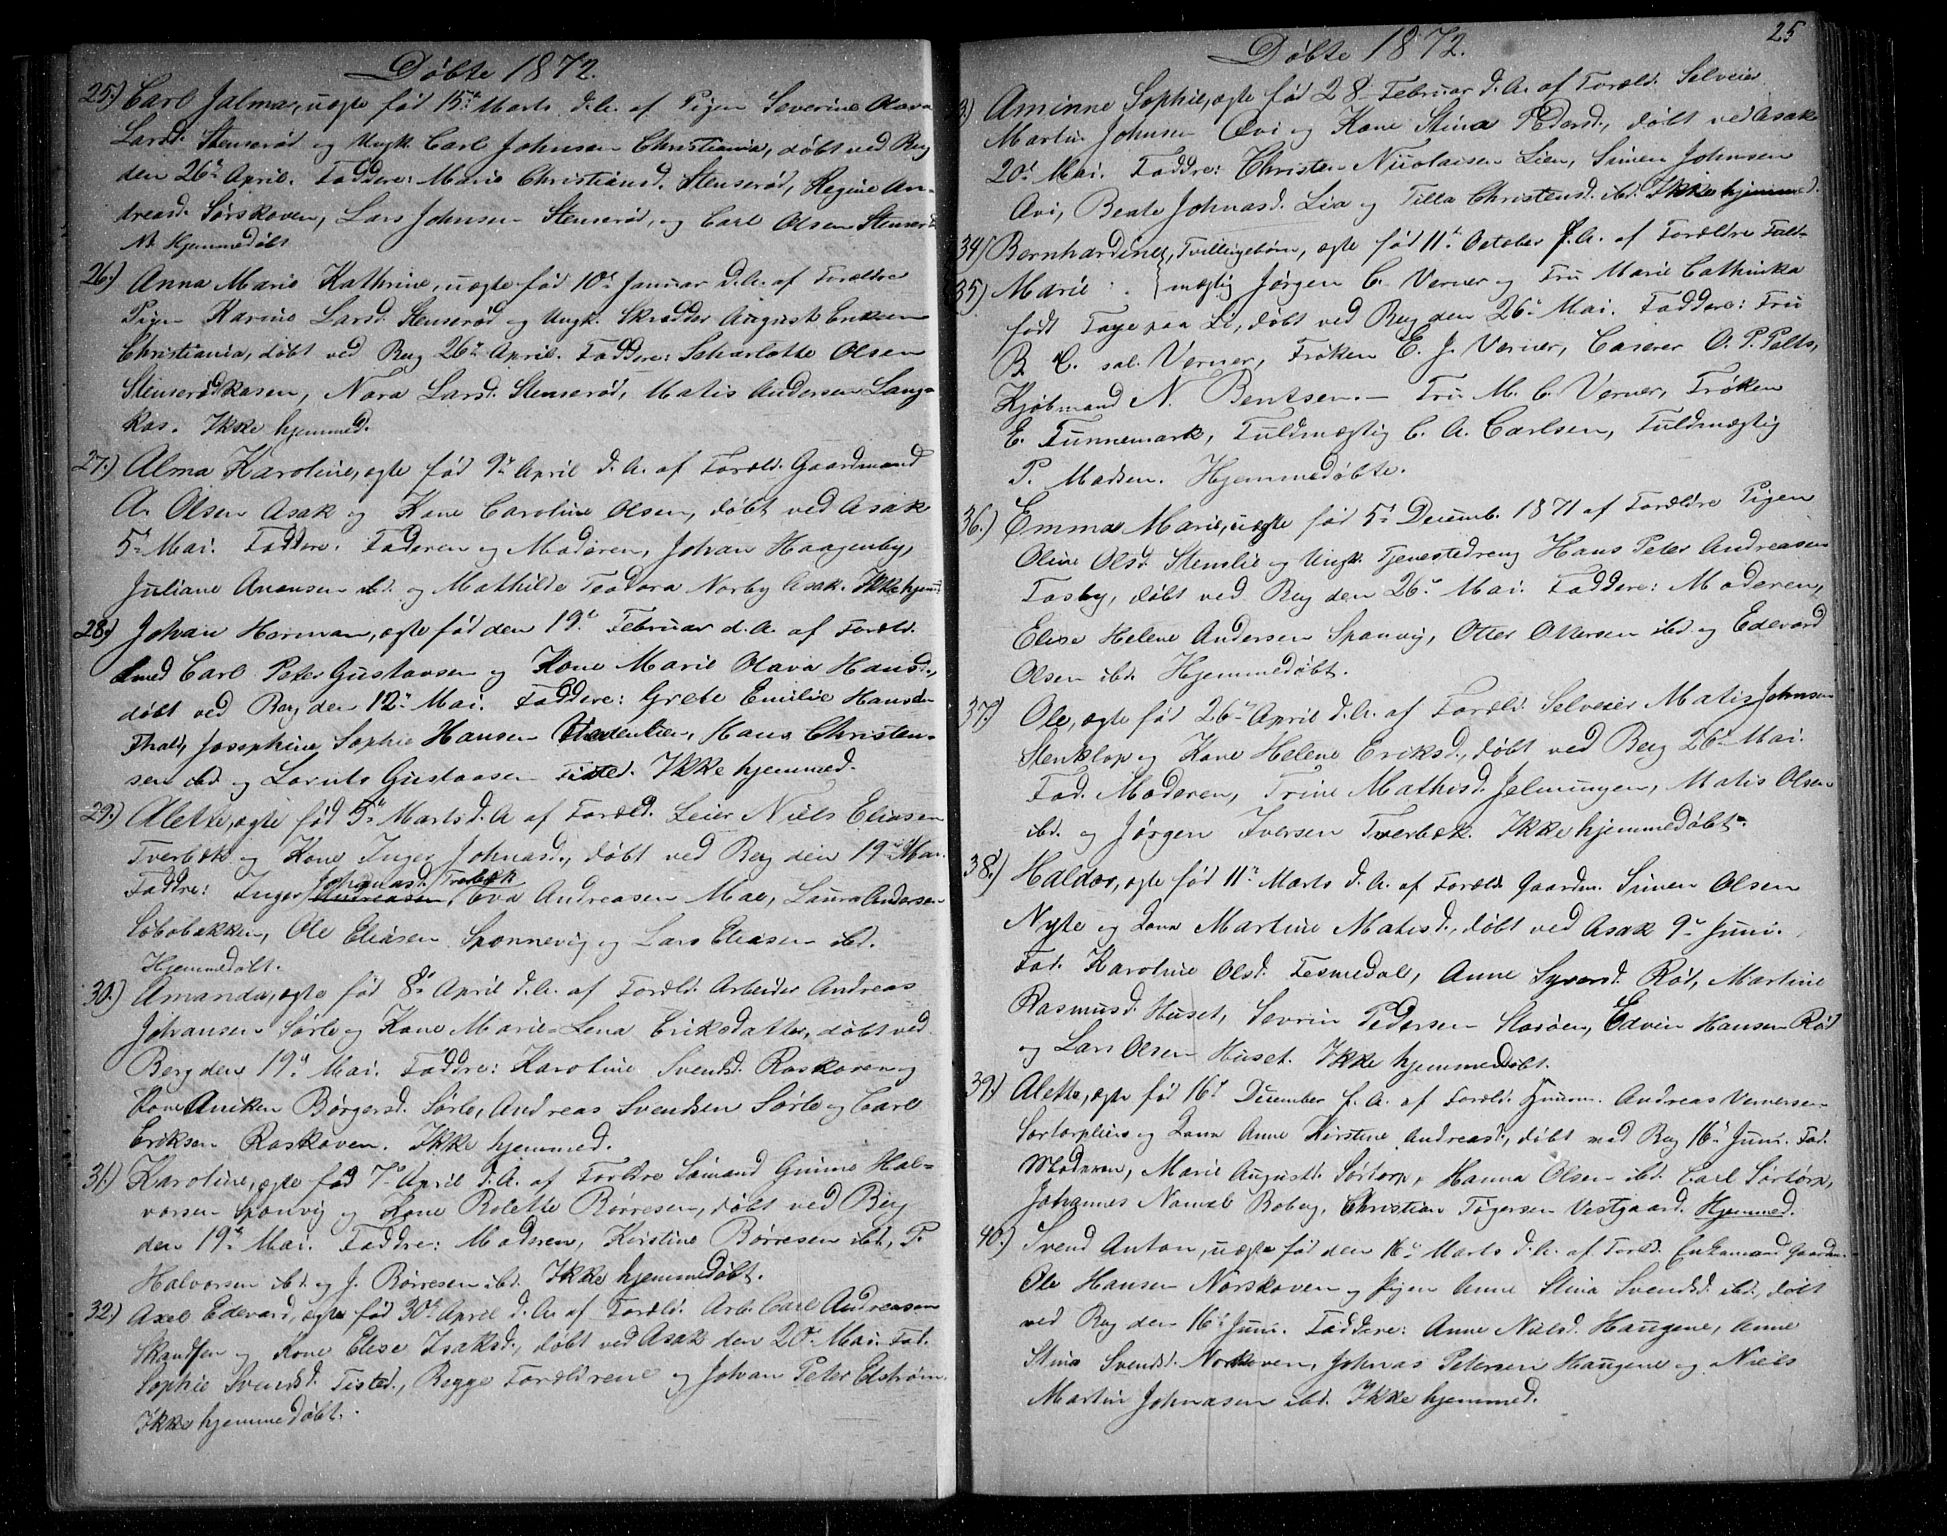 Döbte 1872.
25.) Carl Jalmar, uægte fød 15de Marts d. A. af Pigen Severine Olava
Larsd. Stenserød og Ungk. Carl Johnsen Christiania, døbt ved Berg
den 26de April. Faddere: Marie Christiansd. Stenserød, Regine An-
dreasd. Sørskoven, Lars Johnsen Stenserød, og Carl Olsen Stenserød
Nb Hjemmedøbt
26.) Anna Marie Kathrine, uægte fød 10de Januar d. A. af Forældre
Pigen Karine Larsd. Stenserød og Ungk. Skrædder August Eriksen
Christiania, døbt ved Berg 26de April. Faddere: Scharlotte Olsen
Stenserødkasen, Nora Larsd. Stenserød, Matis Andersen Lang-
kas. Ikke hjemmed.
27.) Alma Karoline, ægte fød 9de April d. A. af Foræld. Gaardmand
A. Olsen Asak og Kone Caroline Olsen, døbt ved Asak
5de Mai. Faddere: Faderen og Moderen, Johan Haagenby,
Juliane Anensen ibd. og Mathilde Teodora Norby Asak. Ikke hjem
28.) Johan Herman, ægte fød den 19de Februar d. A. af Foræld.
Smed Carl Peter Gustavsen og Kone Marie Olava Hansd.,
døbt ved Berg den 12de Mai. Faddere: Grete Emilie Hansd.
Thale, Josephine Sophie Hansen, Hans Christen-
sen ibd. og Lorents Gustavsen Tisted. Ikke hjemmed.
29.) Alette, ægte fød 5de Marts d. A af Foræld. Leier Niels Eliasen
Tverbæk og Kone Inger Johnasd., døbt ved Berg den 19de Mai.
Johnasd. Tverbæk
Faddre: Inger Andreasen, Eva Andreasen Mae, Laura Andersen
Løbobakken, Ole Eliasen Sponnevig og Lars Eliasen ibd.
Hjemmedøbt.
30.) Amanda, ægte fød 8de April d. A. af Foræld. Arbeider Andreas
Johansen Sørle og Kone Marie Lena Eriksdatter, døbt ved
Berg den 19de Mai. Faddre: Karoline Svendsd. Raskoven og
Kone Aniken Børgersd. Sørle, Andreas Svendsen Sørle og Carl
Eriksen Raskoven. Ikke hjemmed.
31.) Karoline, ægte fød 7de April d. A. af Foræld. Sømand Gunne Hal-
vorsen Sponvig og Kone Bolette Børresen, døbt ved Berg
den 19de Mai. Faddre: Moderen, Kirstine Børresen ibd., P.
Halvorsen ibd. og J. Børresen ibd. Ikke hjemmedøbt.
32.) Axel Edevard, ægte fød 30de April d. A. af Foræld. Arb. Carl Andreasen
Skandsen og Kone Elise Isaksd., døbt ved Asak den 20de Mai. Fad.
Sophie Svendsd. Tisted., Begge Forældrene og Johan Peter Elstrøm.
Ikke hjemmedøbt.
25
Döbte 1872.
3.) Aminne Sophie, ægte fød 28 Februar d. A. af Foræld. Selveier
Martin Johnsen Ovi og Kone Stina Pedersd., døbt ved Asak
20de Mai. Faddre: Christen Nicolaisen Lien, Simen Johnsen
Avi, Beate Johnasd. Lia og Tilla Christensd. ibd. Ikke hjemmed.
34) Bernhardine, Tvillingebørn, ægte fød 11te October f. A. af Forældre Fuld-
35.) Marie mægtig Jørgen C. Verner og Fru Marie Cathinka
født Faye paa Li, døbt ved Berg den 26de Mai. Faddere: Fru
B. C. sal. Verner, Frøken E. J. Verner, Caserer O. P. Pelts,
Kjøbmand N. Bentsen. — Fru M. C. Verner, Frøken
E. Tunnemark, Fuldmægtig C. A. Carlsen, Fuldmægtig
P. Madsen. Hjemmedøbte.
36.) Emma Marie, uægte fød 5te Decemb. 1871 af Forældre Pigen
Oline Olsd. Stenslie og Ungk. Tjenestedreng Hans Peter Andreasen
Tosby, døbt ved Berg den 26de Mai. Faddere: Moderen,
Elise Helene Andersen Sponvig, Otter Ottersen ibd. og Edevard
Olsen ibd. Hjemmedøbt.
37.) Ole, ægte fød 26de April d. A. af Foræld. Selveier Matis Johnsen
Stenklop og Kone Helene Eriksd., døbt ved Berg 26de Mai.
Fad. Moderen, Trine Mathisd. Jelmungen, Matis Olsen
ibd. og Jørgen Iversen Tverbæk. Ikke hjemmedøbt.
38.) Haldor, ægte fød 11te Marts d. A. af Foræld. Gaardm. Simen Olsen
Nyte og Kone Martine Matisd., døbt ved Asak 9de Juni.
Fad. Karoline Olsd. Tesmedal, Anne Syversd. Rød, Martine
Rasmusd. Huset, Sevrin Pedersen Storøen, Edvin Hansen Rød
og Lars Olsen Huset. Ikke hjemmedøbt.
39.) Alette, ægte fød 16de December f. A. af Foræld. Huusm. Andreas Vernersen
Sørtorpleie og Kone Anne Kirstine Andreasd., døbt ved Berg 16de Juni. Fad.
Moderen, Marie Augustd. Sørtorp, Hanna Olsen ibd. Carl Sørtorp,
Johannes Boberg, Christian Tøgersen Vestgaard. Hjemmed.
40.) Svend Anton, uægte fød den 16de Marts d. A. af Foræld. Enkemand Gaardm.
Ole Hansen Norskoven og Pigen Anne Stina Svendsd. ibd., døbt
ved Berg den 16de Juni. Faddere: Anne Nielsd. Haugene, Anne
Stina Svendsd. Norskoven, Johnas Petersen Haugene og Niels
Martin Johnasen ibd. Ikke hjemmed.